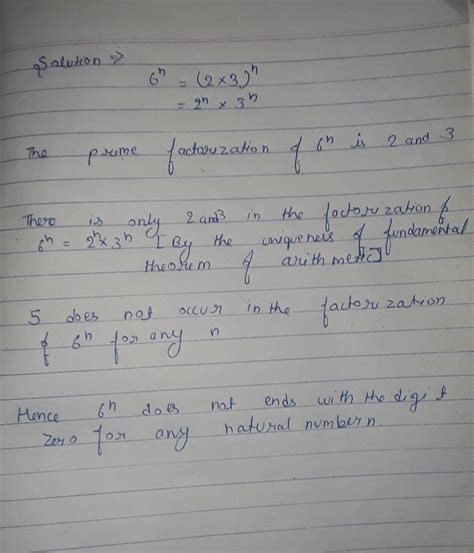 Solution ⇒
6ⁿ = (2×3)ⁿ
= 2ⁿ × 3ⁿ
The prime factoruzation of 6ⁿ is 2 and 3
There is only 2 and 3 in the factoruzation of
6ⁿ = 2ⁿ×3ⁿ [By the uniqueness of fundamental
theorem of arithmetic]
5 does not occur in the factoruzation
of 6ⁿ for any n
Hence 6ⁿ does not ends with the digit
zero for any natural number n.